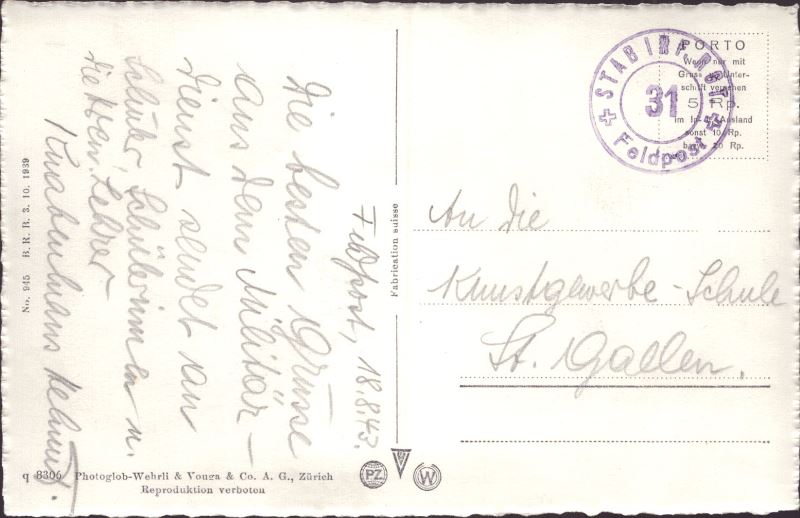 Feldpost, 18.8.43.
Die besten Grüsse
aus dem Militär-
dienst sendet an
Schüler, Schülerinnen u.
die Lehrer
Helmut.
No. 945 B. R. B. 3. 10. 1939
q 8306 Photoglob-Wehrli & Vouga & Co. A. G., Zürich
Reproduktion verboten
Fabrication suisse
PZ
W
STAB INF. RGT.
31
Feldpost
PORTO
Wenn nur mit
Gruss u. Unter-
schrift versehen
5 Rp.
im In- u. Ausland
sonst 10 Rp.
bzw. 20 Rp.
An die
Kunstgewerbe-Schule
St. Gallen.